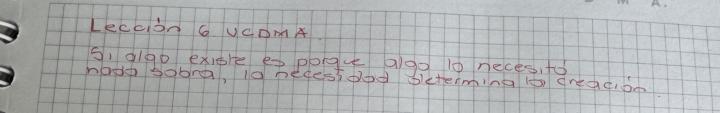 Lección 6 UCDMA.
Si algo existe es porque algo lo necesitó
nada sobra, la necesidad determina la creación.